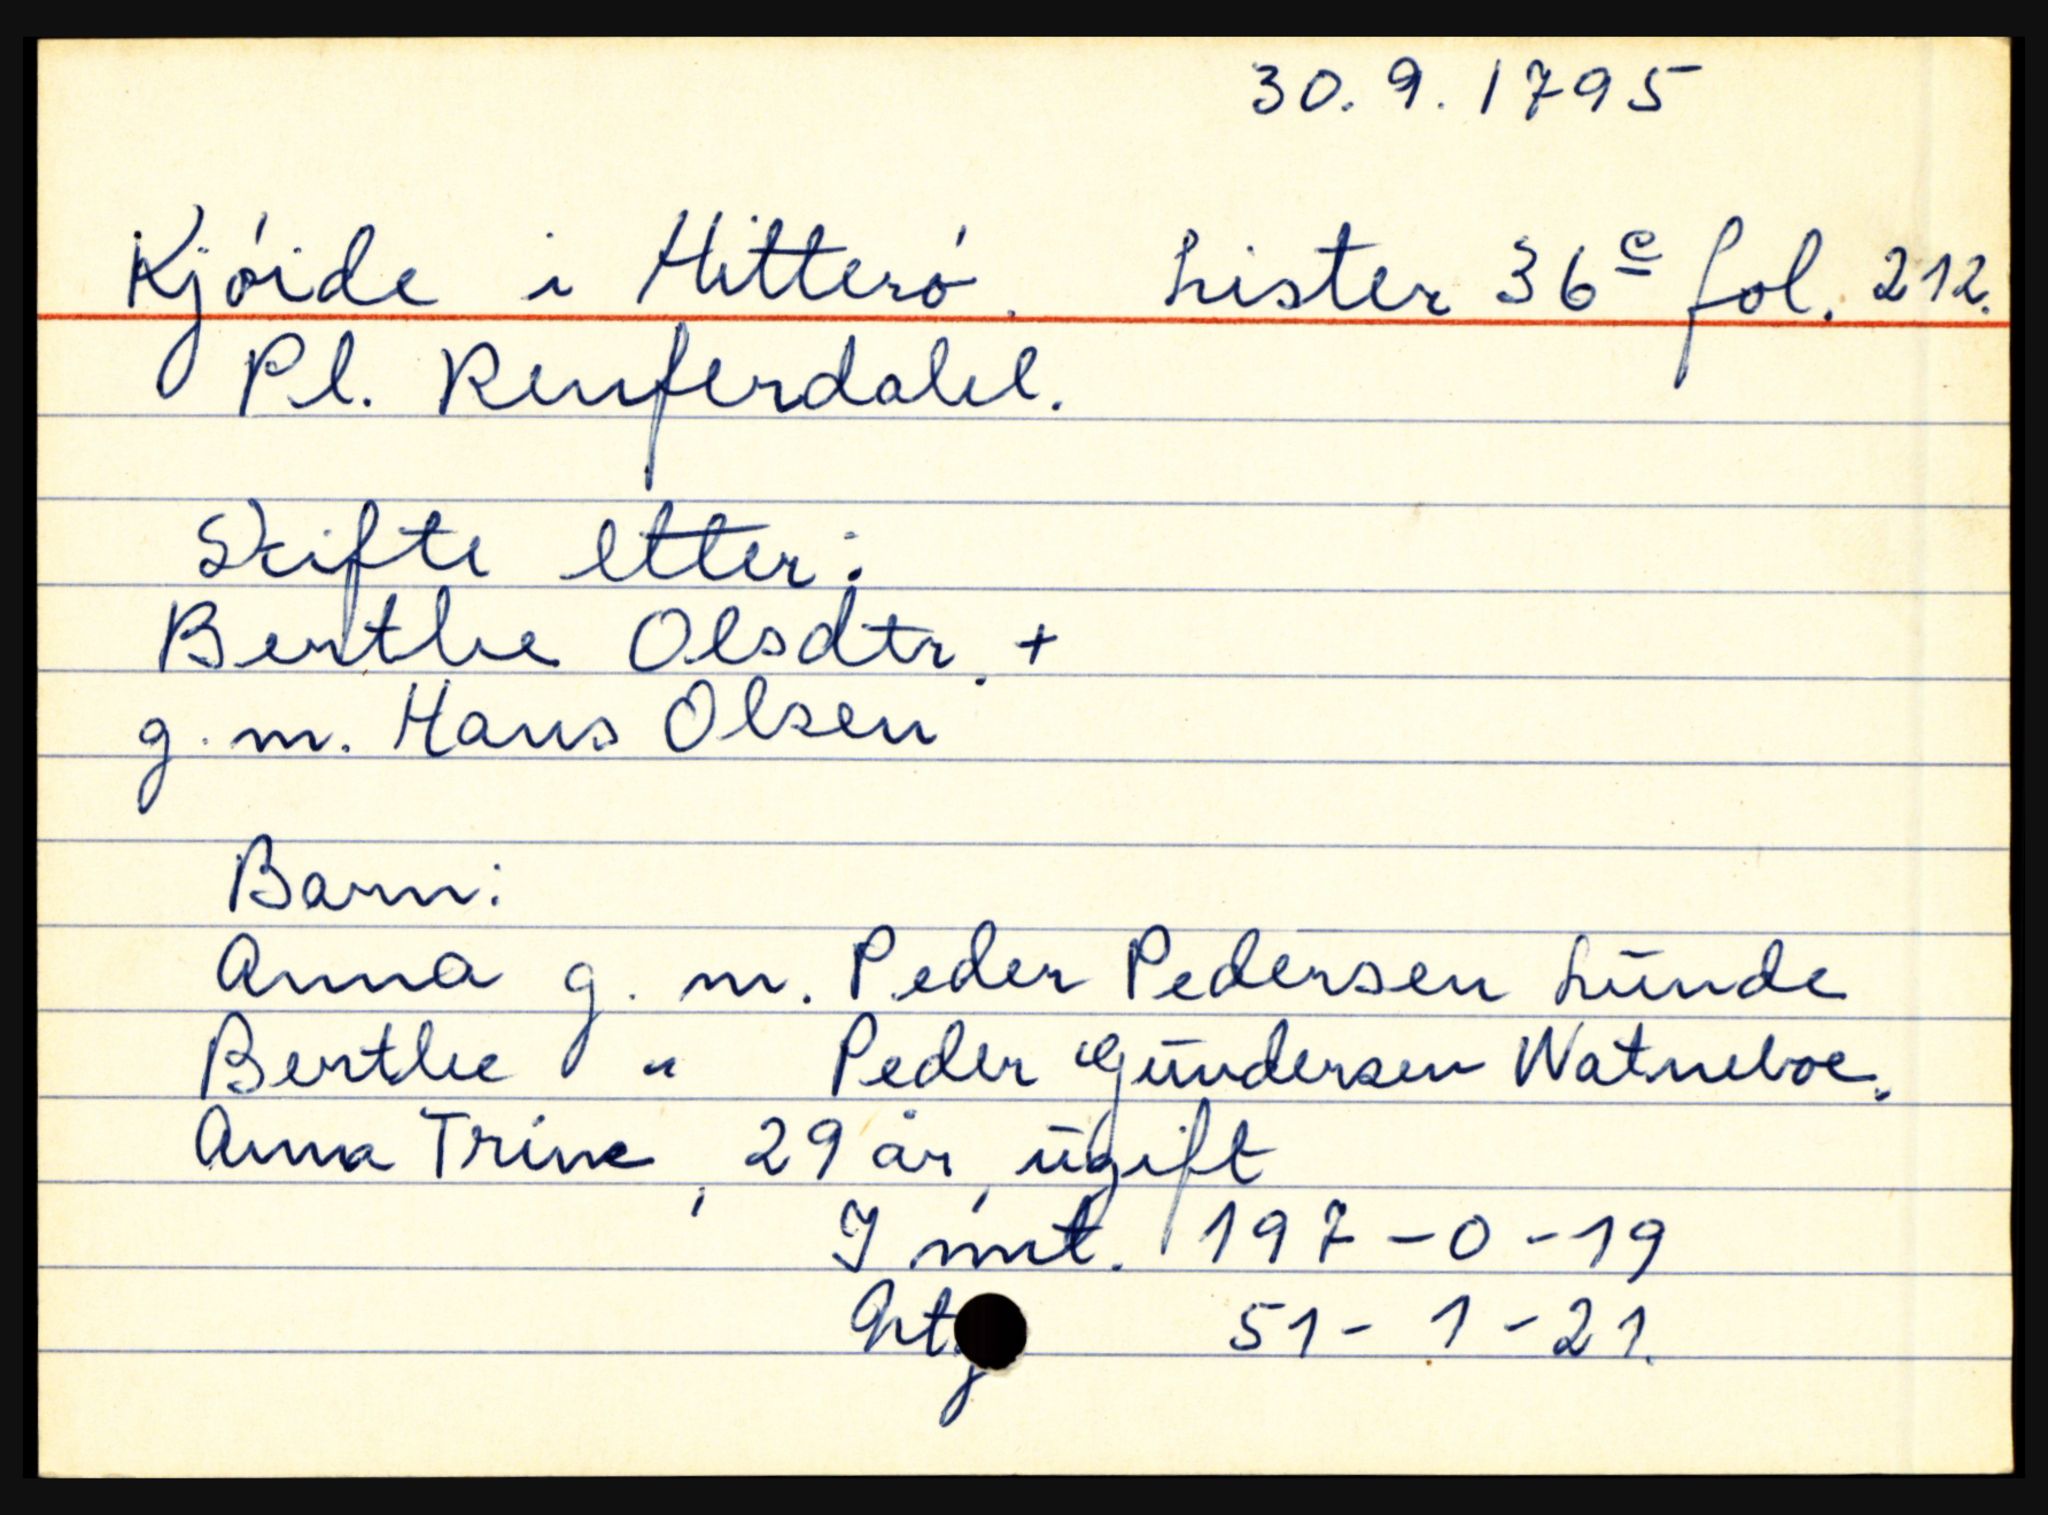 30. 9. 1795
Kjóide i Hitteró. Lister 36 c fol. 212.
Pl. Renferdalel.
Skifte etter:
Berthe Olsdtr. +
g. m. Hans Olsen
Barn:
Anna g. m. Peder Pedersen Lūnde
Berthe " Peder Gūndersen Watneboe.
Anna Trine, 29 år, ūgift
I mt. 197-0-19
51-1-21.